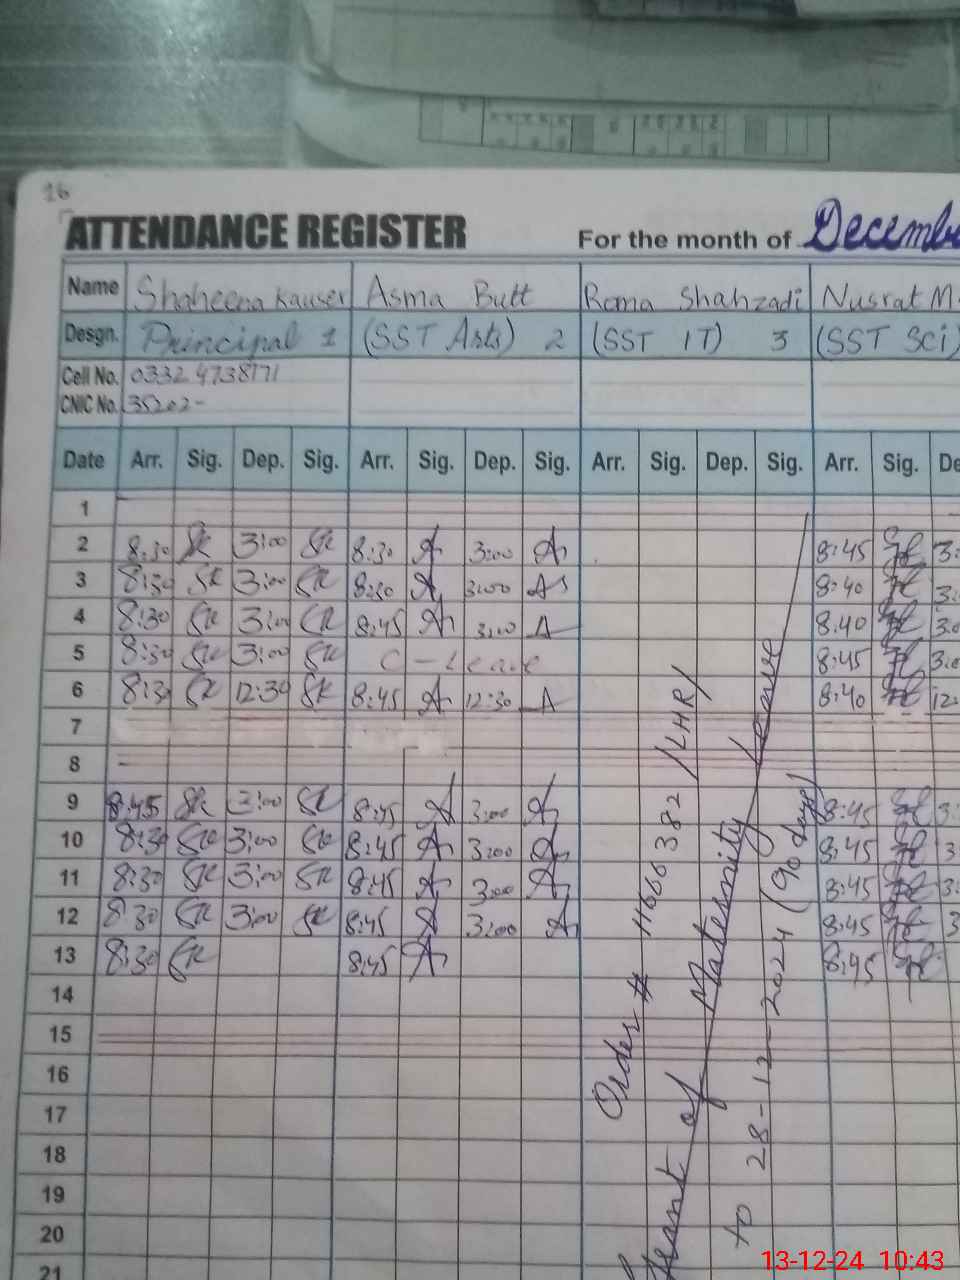 16
ATTENDANCE REGISTER For the month of December
Name Shaheena Kauser Asma Butt Roma Shahzadi Nusrat M.
Desgn. Principal 1 (SST Arts) 2 (SST IT) 3 (SST Sci)
Cell No. 0332 4738171
CNIC No. 35202-
Date Arr. Sig. Dep. Sig. Arr. Sig. Dep. Sig. Arr. Sig. Dep. Sig. Arr. Sig. De
1
2 8:30 SK 3:00 SK 8:30 A 3:00 A 8:45 3:
3 8:30 SK 3:00 SK 8:30 A 3:00 A 8:40 3:
4 8:30 SK 3:00 SK 8:45 A 3:00 A 8:40 3:0
5 8:30 SK 3:00 SK C-Leave 8:45 3:0
6 8:30 SK 12:30 SK 8:45 A 12:30 A 8:40 12:
7
8
9 8:45 SK 3:00 SK 8:45 A 3:00 A 8:45 3:
10 8:30 SK 3:00 SK 8:45 A 3:00 A 8:45 3
11 8:30 SK 3:00 SK 8:45 A 3:00 A 8:45 3:
12 8:30 SK 3:00 SK 8:45 A 3:00 A 8:45 3
13 8:30 SK 8:45 A 8:45
14
15
16
17
18
19
20
21
Order # 11666382 /LHR/
of Maternity Leave
to 28-12-2024 (90 days)
13-12-24 10:43